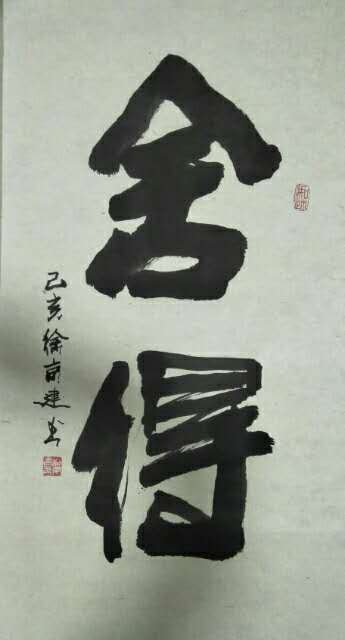 舍得
己亥徐前建书